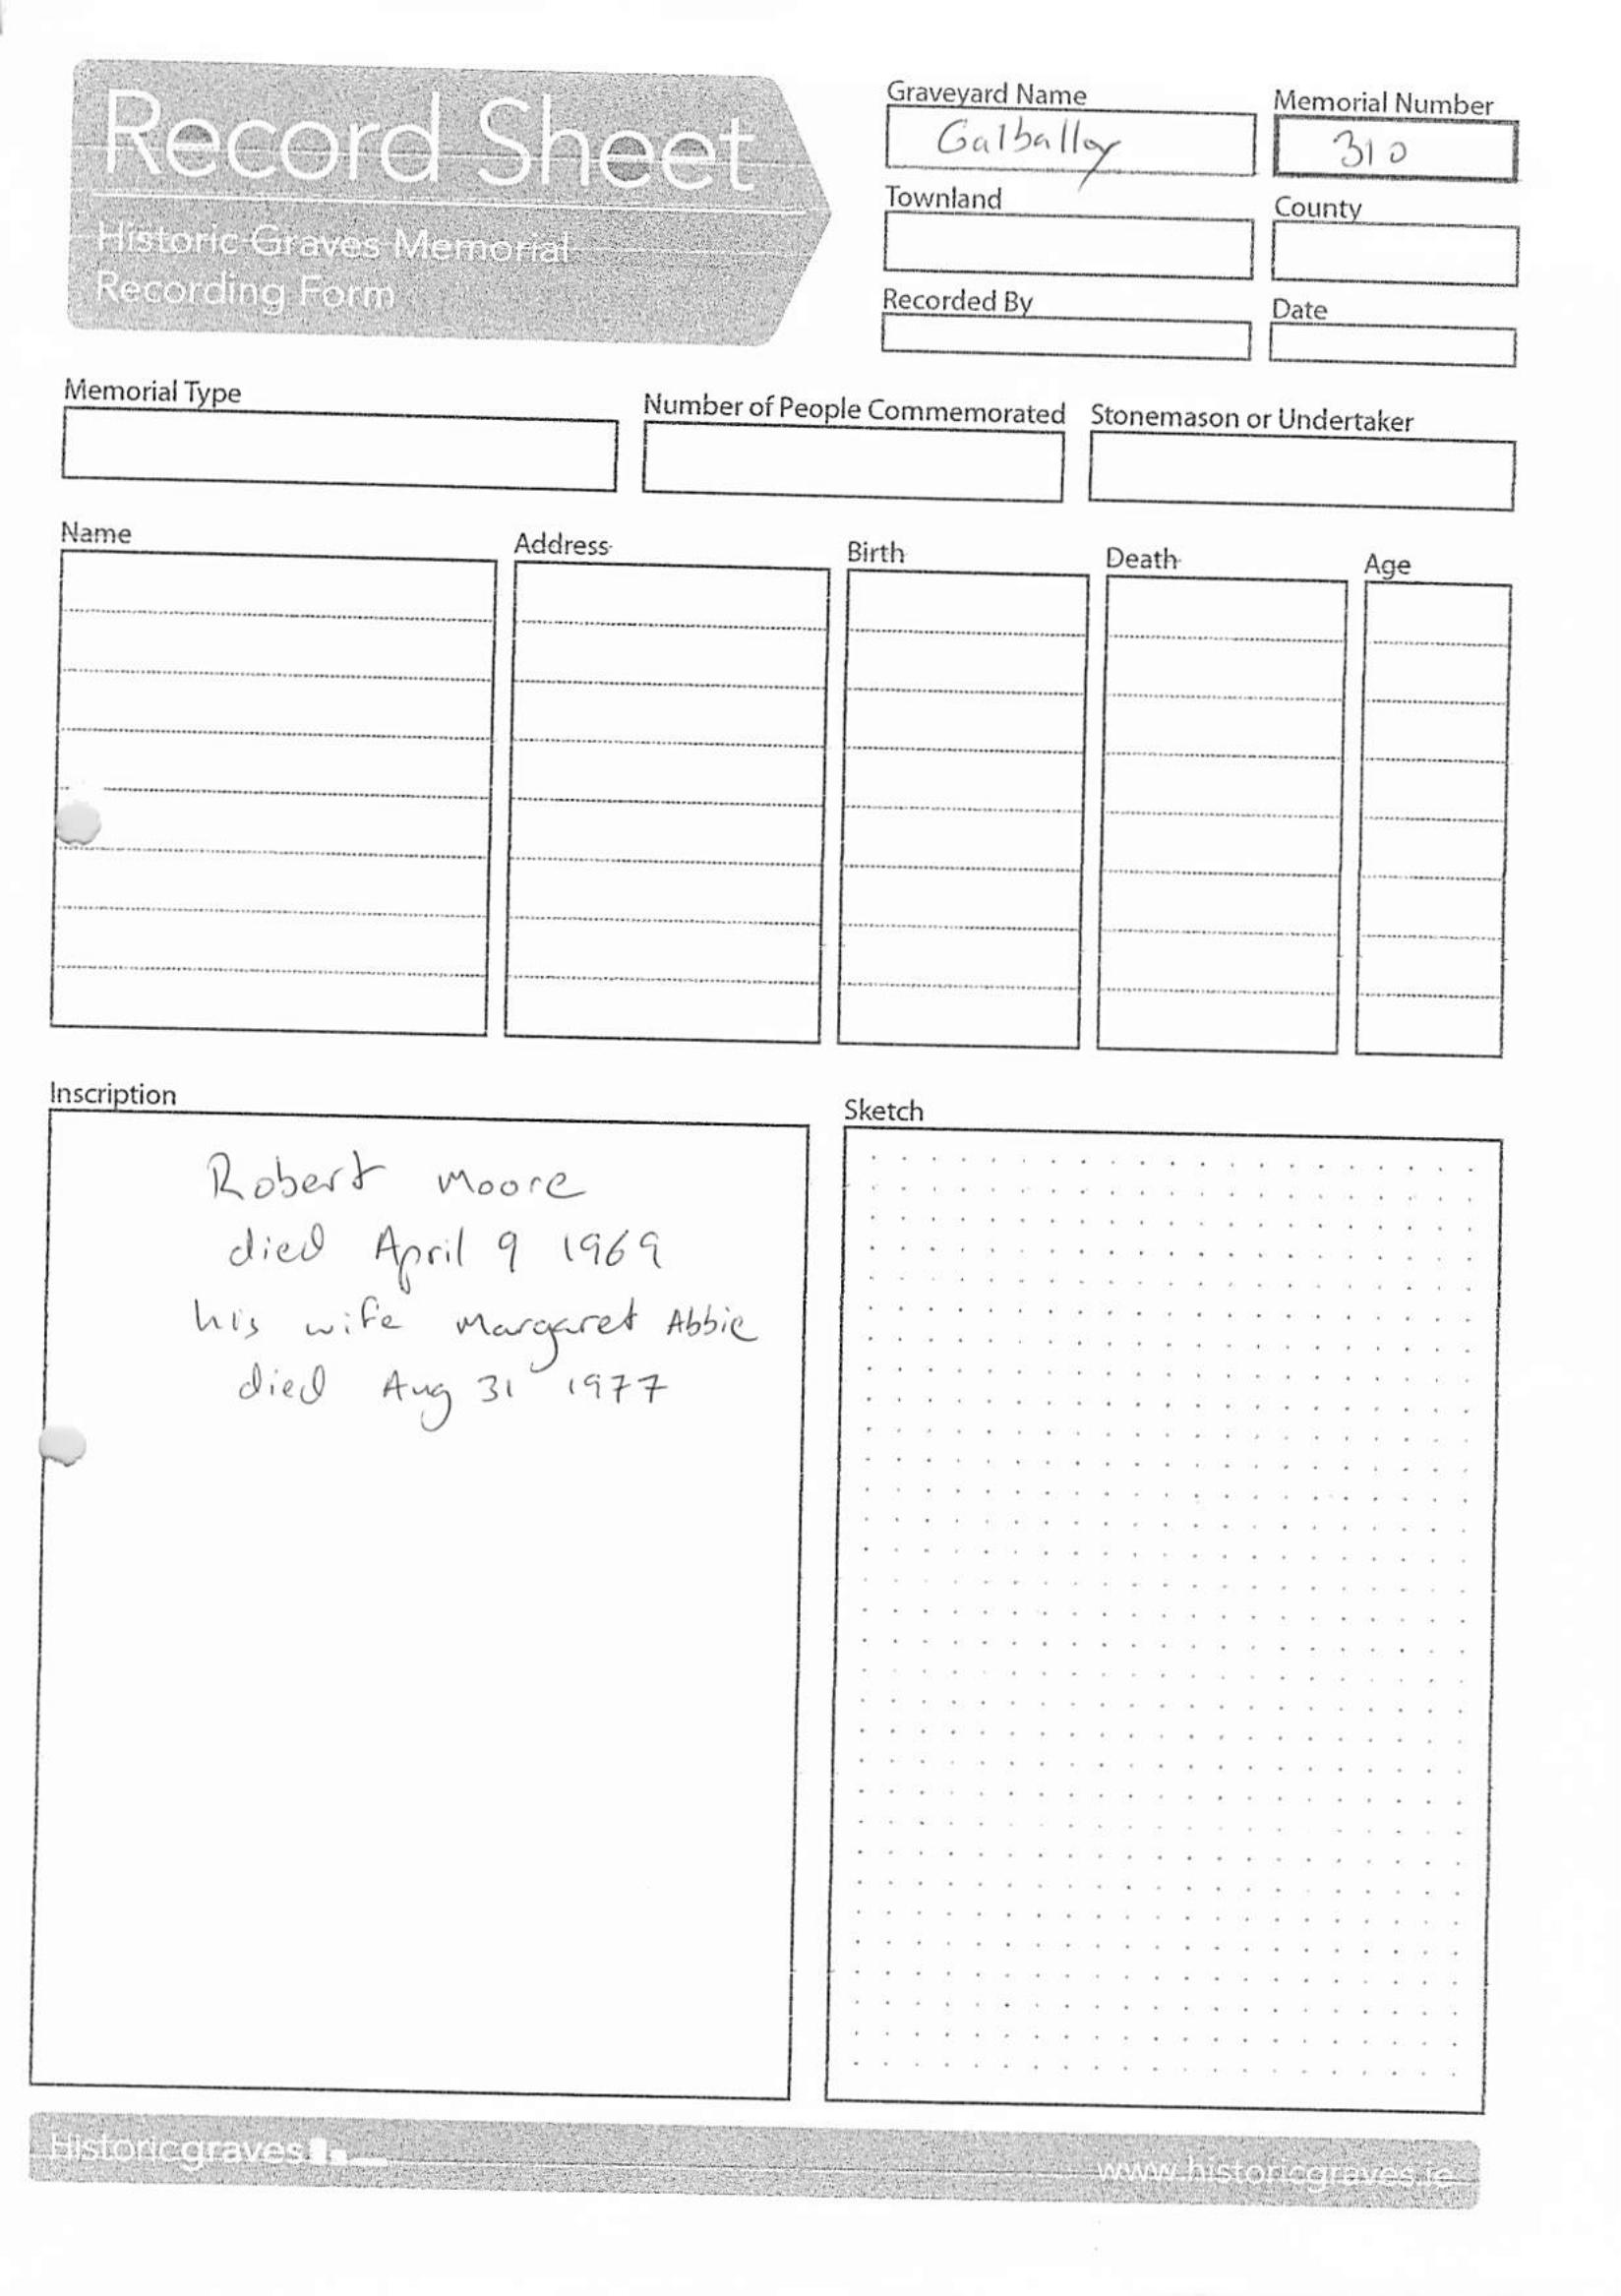 Record Sheet
Historic Graves Memorial
Recording Form
Graveyard Name
Galballey
Memorial Number
310
Townland
County
Recorded By
Date
Memorial Type
Number of People Commemorated
Stonemason or Undertaker
Name
Address
Birth
Death
Age
Inscription
Robert Moore
died April 9 1969
his wife Margaret Abbie
died Aug 31 1977
Sketch
Historicgraves
www.historicgraves.ie